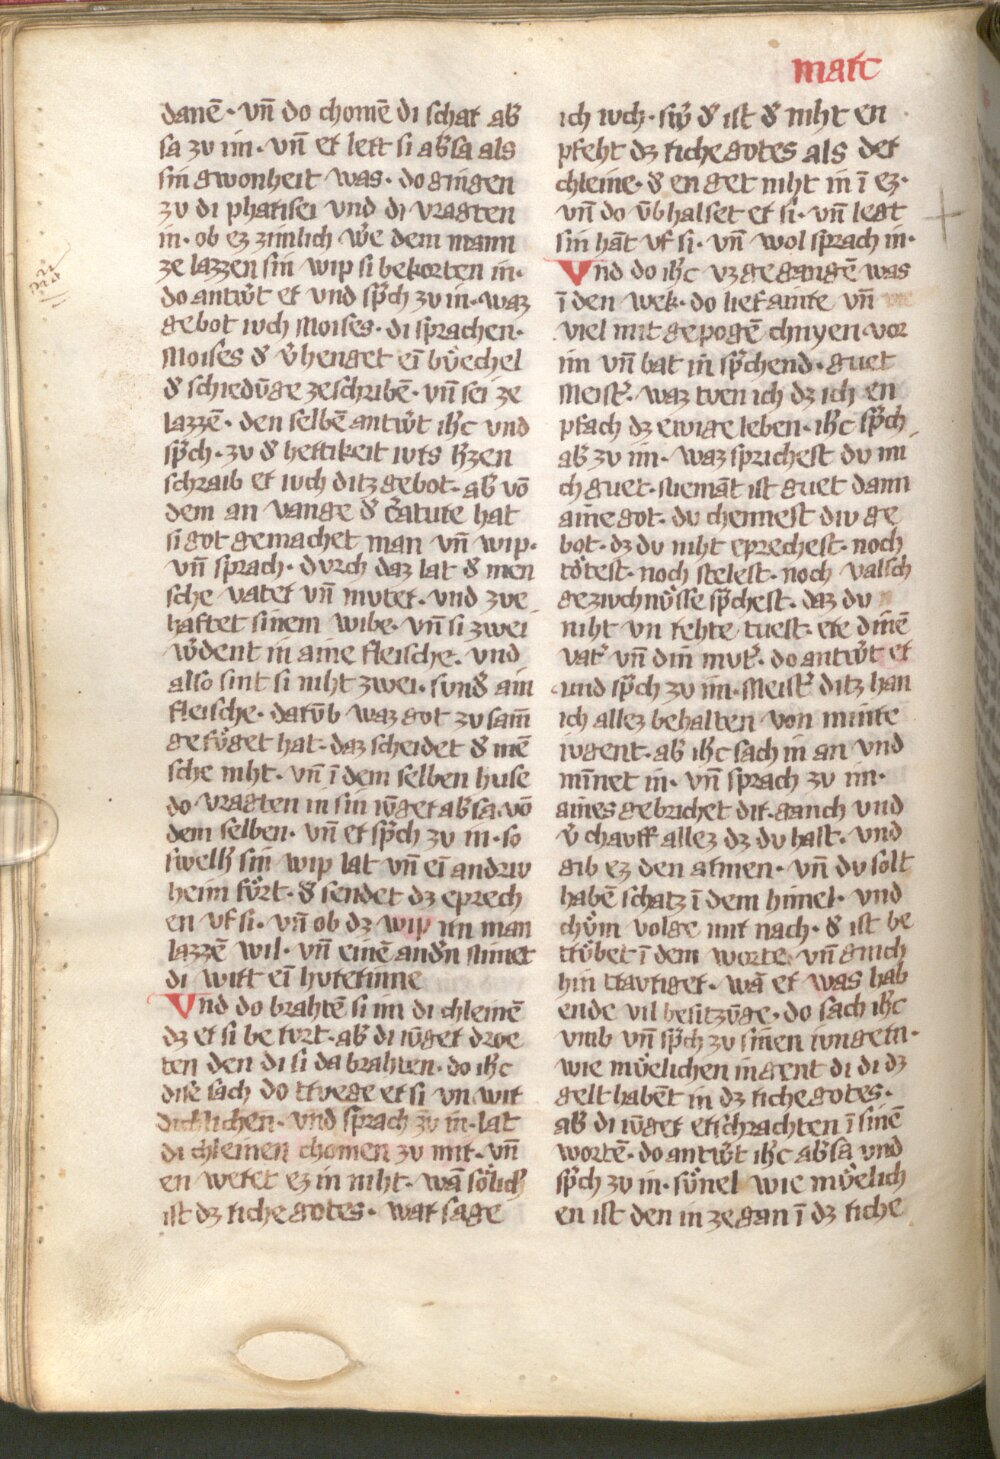 marc
danē · vn̄ do chomē di schar ab̓
sa zu im · vn̄ er lert si ab̓sa als
sin gwonheit was · do gingen
zv di pharisei vnd di vragten
in · ob ez zimlich w̓e dem mann
ze lazzen sin wip si bekorten in ·
do antw̓t er vnd sp̓ch zv in · waz
gebot iuch Moises · di sprachen ·
Moises d̓ v̓henget ein bvͤechel
d̓ schiedūge zeschribē · vn̄ sei ze
lazzē · den selbē antw̓t ih̓c vnd
sp̓ch · zv d̓ hertikeit iurs h̓zen
schraib er iuch ditz gebot · ab̓ vō
dem an vange d̓ c̓ature hat
si got gemachet man vn̄ wip ·
vn̄ sprach · dvrch daz lat d̓ men
sche vater vn̄ mvter · vnd zve
haftet sinem wibe · vn̄ si zwei
w̓dent in aine fleische · vnd
also sint si niht zwei · sund̓ ain
fleische · darūb waz got zv sam̄
gefvͤget hat · daz scheidet d̓ mē
sche niht · vn̄ ī dem selben huse
do vragten in sin iūger ab̓sa · vō
dem selben · vn̄ er sp̓ch zv in · so
swelh̓ sin wip lat vn̄ ein andriv
heim fvͤrt · d̓ sendet dz eprech
en vf si · vn̄ ob dz wip irn man
lazzē wil · vn̄ einē and̓n nimet
di wirt ein hvrerinne
Vnd do brahtē si im di chleinē
dz er si be rvrt · ab̓ di iūger droe
ten den di si da brahten · do ih̓c
dise sach do trvege er si vn wir
dichlichen · vnd sprach zv in · lat
di chleinen chomen zv mir · vn̄
en weret ez in niht · wā soͤlich̓
ist dz riche gotes · war sage
ich iuch · sw̓ d̓ ist d̓ niht en
pfeht dz riche gotes als der
chleine · d̓ en get niht in ī ez ·
vn̄ do v̄bhalset er si · vn̄ legt
sin hāt vf si · vn̄ wol sprach in ·
Vnd do ih̓c vz gegangē was
ī den wek · do lief ainre vn̄
viel mit gepogē chnyen vor
im vn̄ bat in sp̓chend · guet
Meist̓ · waz tven ich dz ich en
pfach dz ewige leben · ih̓c sp̓ch
ab̓ zv im · waz sprichest dv mi
ch guet · niemāt ist guet dann
aine got · dv chennest div ge
bot · dz dv niht eprechest · noch
toͤtest · noch stelest · noch valsch
gezivchnvͤsse sp̓chest · daz dv
niht vn rehte tuest · ere dinē
vat̓ vn̄ din mvt̓ · do antw̓t er
und sp̓ch zv im · Meist̓ ditz han
ich allez behalten von minre
iugent · ab̓ ih̓c sach in an vnd
mīnet in · vn̄ sprach zv im ·
aines gebrichet dir · ganch vnd
v̓chauff allez dz dv hast · vnd
gib ez den armen · vn̄ dv solt
habē schatz ī dem himel · vnd
chvͤm volge mir nach · d̓ ist be
trvͤbet ī dem worte vn̄ gench
hin travriger · wā er was hab
ende vil besitzūge · do sach ih̓c
vmb vn̄ sp̓ch zv sinen iungern ·
wie mvͤelichen ingent di di dz
gelt habent in dz riche gotes ·
ab̓ di iūger ersch̓rachten ī sinē
wortē · do antw̓t ih̓c ab̓sa vnd
sp̓ch zv in · svͤnel wie mvͤelich
en ist den in ze gan ī dz riche